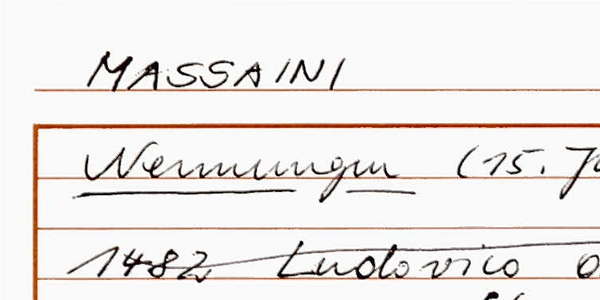 MASSAINI
Nennungen (15.
1482 Ludovico